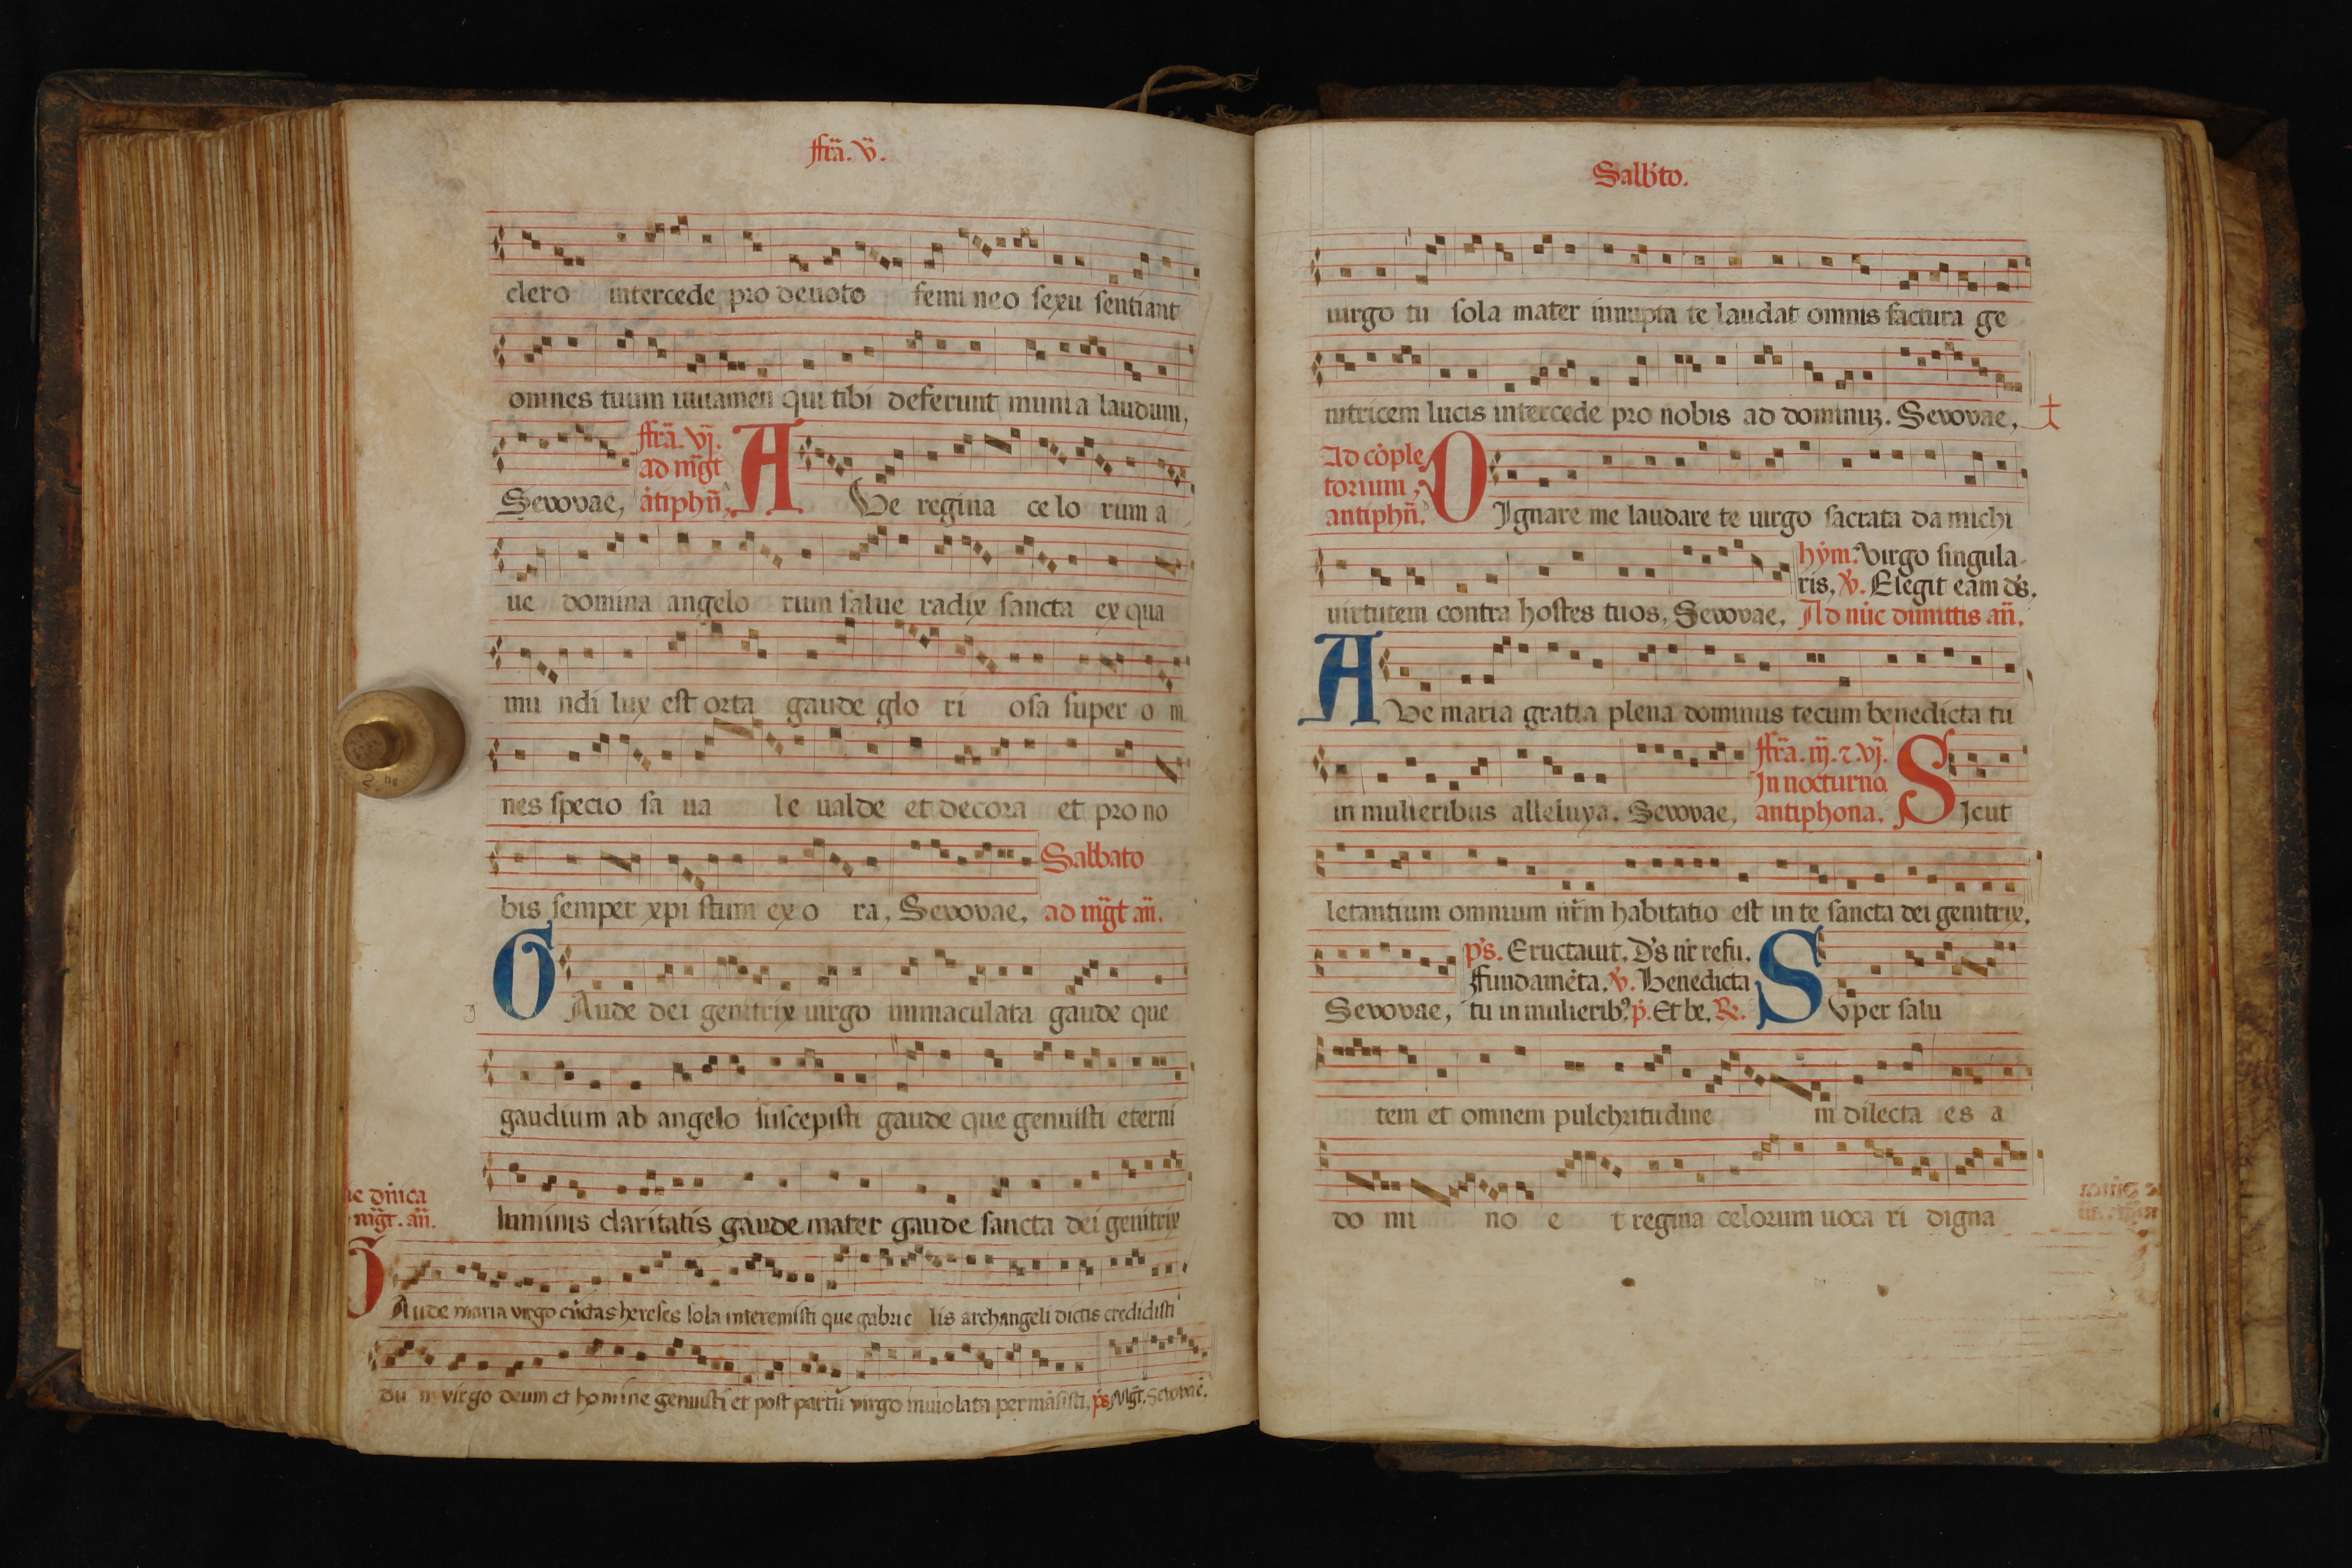 ffrã. v̈.
clero intercede pro deuoto femineo sexu sentiant
omnes tuum iuuamen qui tibi deferunt munia laudum,
ffrã. vj.
ad mg̃t
Seuouae, ãtiphñ, A Ve regina ce lo rum a
ue domina angelo rum salue radix sancta ex qua
mu ndi lux est orta gaude glo ri osa super o m
nes specio sa ua le ualde et decora et pro no
Sabbato
bis semper xpi stum ex o ra, Seuouae, ad mg̃t añ.
G Aude dei genitrix uirgo inmaculata gaude que
gaudium ab angelo suscepisti gaude que genuisti eterni
luminis claritatis gaude mater gaude sancta dei genitrix
dñica
mg̃t. añ.
G Aude maria virgo cũctas hereses sola interemisti que gabrie lis archangeli dictis credidisti
du m virgo deum et homine genuisti et post partũ virgo inuiolata permãsisti, p̃s Mg̃t. Seuouae.
Sabb'to.
uirgo tu sola mater innupta te laudat omnis factura ge
nitricem lucis intercede pro nobis ad dominuꝫ. Seuouae,
Ad cõple
torium,
antiphñ. D Ignare me laudare te uirgo sacrata da michi
hỹm. Virgo singula
ris, ṽ. Elegit eam d̃s.
uirtutem contra hostes tuos, Seuouae, Ad nũc dimittis añ.
A Ve maria gratia plena dominus tecum benedicta tu
ffrã. iij. ⁊. vj.
In nocturno
in mulieribus alleluya. Seuouae, antiphona, S Icut
letantium omnium nr̃m habitatio est in te sancta dei genitrix.
p̃s. Eructauit. D̃s nr̃ refu.
ffundamẽta. ṽ. Benedicta
Seuouae, tu in mulieribꝰ. p̃. Et be. R̃. S Vper salu
tem et omnem pulchritudine m dilecta es a
do mi no e t regina celorum uoca ri digna